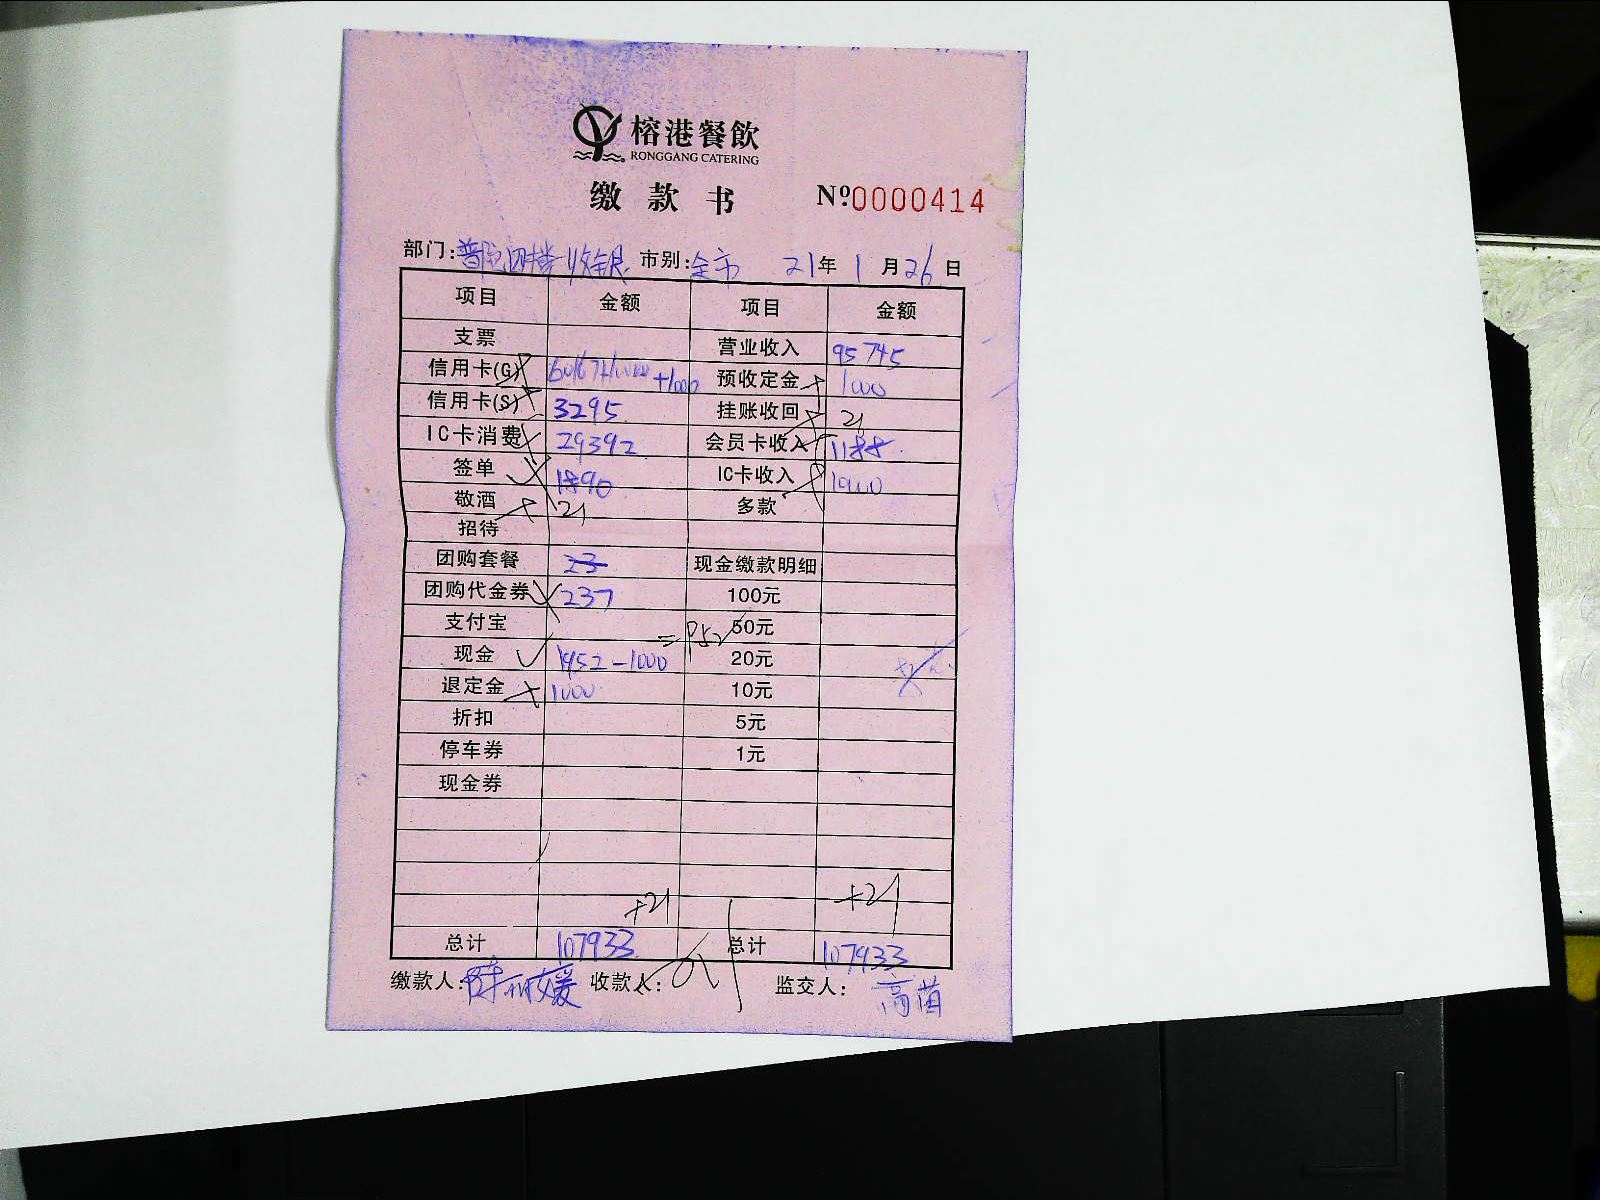 榕港餐飲
RONGGANG CATERING
缴款书 Nº0000414
部门: 收银 市别:全市 21年1月26日
项目 金额 项目 金额
支票 营业收入 95745
信用卡(G) +1000 预收定金 1000
信用卡(S) 3295 挂账收回 21
IC卡消费 29392 会员卡收入 1188
签单 1890 IC卡收入
敬酒 21 多款
招待
团购套餐 现金缴款明细
团购代金券 237 100元
支付宝 =952 50元
现金 1952-1000 20元
退定金 1000 10元
折扣 5元
停车券 1元
现金券
+21 +21
总计 107933 总计 107933
缴款人: 收款人: 监交人: